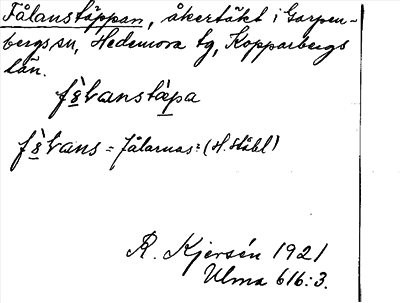 Fålanstäppan, åkertäkt i Garpen-
bergs sn, Hedemora tg, Kopparbergs
län.
fàlanstäpa
fàlans = fålarnas: (H. Ståhl)
R. Kjersén 1921
Ulma 616:3.